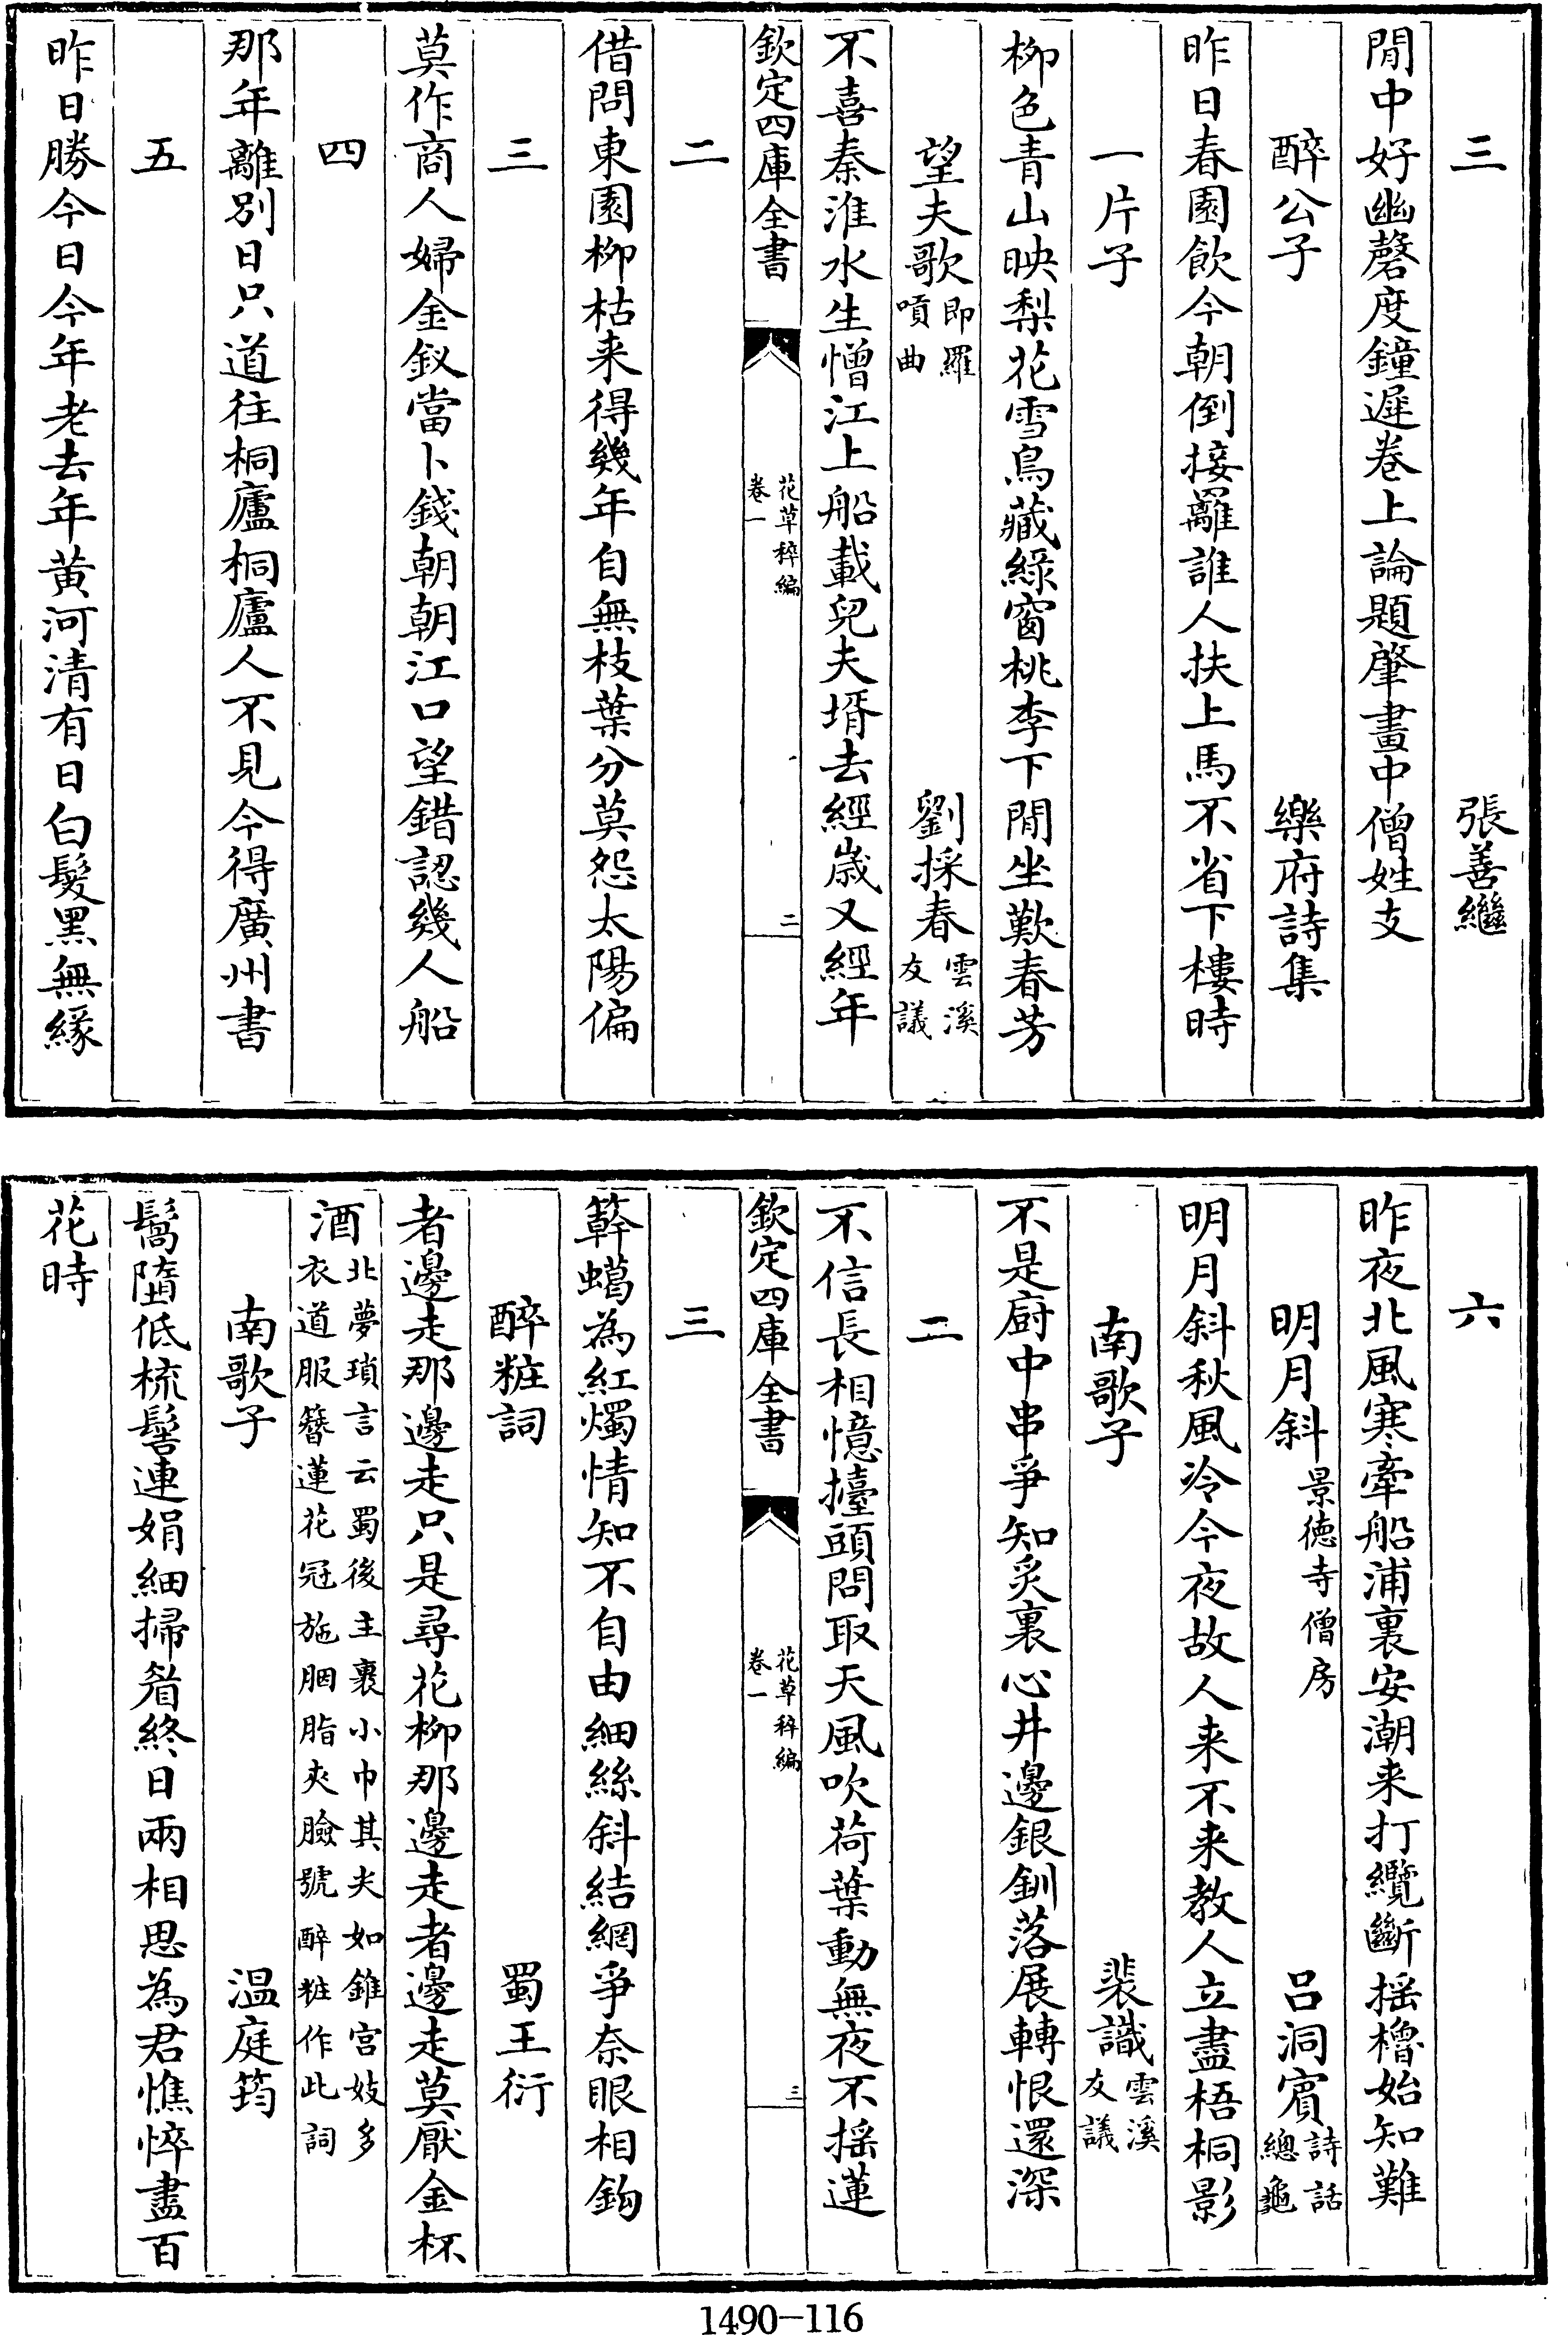 三　張善繼
閒中好幽磬度鐘遲卷上論題肇畫中僧姓支
醉公子　樂府詩集
昨日春園飲今朝倒接䍦誰人扶上馬不省下樓時
一片子
柳色青山映梨花雪鳥藏綠窗桃李下閒坐歎春芳
望夫歌即羅嗊曲　劉採春雲溪友議
不喜秦淮水生憎江上船載兒夫壻去經歲又經年
欽定四庫全書　花草稡編卷一　二
二
借問東園柳枯来得幾年自無枝葉分莫怨太陽偏
三
莫作商人婦金釵當卜錢朝朝江口望錯認幾人船
四
那年離別日只道往桐廬桐廬人不見今得廣州書
五
昨日勝今日今年老去年黄河清有日白髮黑無緣
六
昨夜北風寒牽船浦裏安潮来打纜斷揺櫓始知難
明月斜景徳寺僧房　吕洞賓詩話總龜
明月斜秋風冷今夜故人来不来教人立盡梧桐影
南歌子　裴諴雲溪友議
不是厨中串爭知炙裏心井邊銀釧落展轉恨還深
二
不信長相憶擡頭問取天風吹荷葉動無夜不揺蓮
欽定四庫全書　花草稡編卷一　三
三
簳蠋為紅燭情知不自由細絲斜結網爭奈眼相鉤
醉粧詞　蜀王衍
者邊走那邊走只是尋花柳那邊走者邊走莫厭金杯
酒北夢瑣言云蜀後主裹小巾其尖如錐宫妓多衣道服簪蓮花冠施胭脂夾臉號醉粧作此詞
南歌子　温庭筠
鬌墮低梳髻連娟細掃眉終日兩相思為君憔悴盡百
花時
1490-116